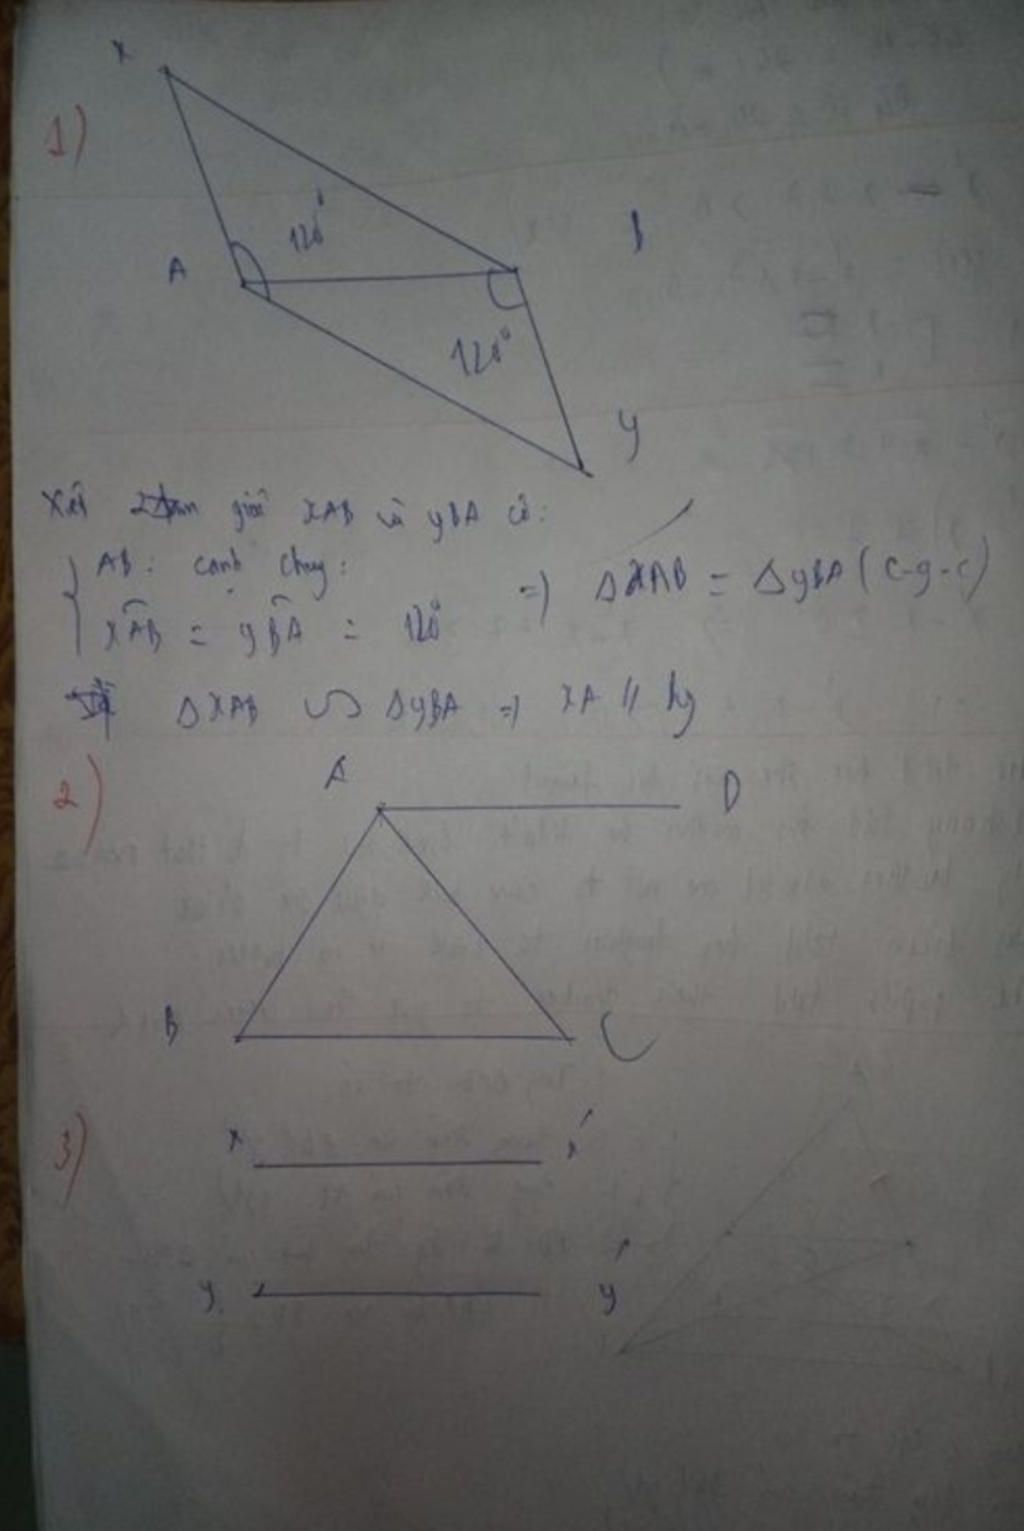 1)
x
120°
A
B
120°
y
Xét 2 tam giác xAB và yBA có:
AB: cạnh chung:
xÂB = yB̂A = 120°
=> ΔxAB = ΔyBA (c-g-c)
ΔxAB ∽ ΔyBA => xA // by
2)
A
D
B
C
3)
x
x'
y
y'